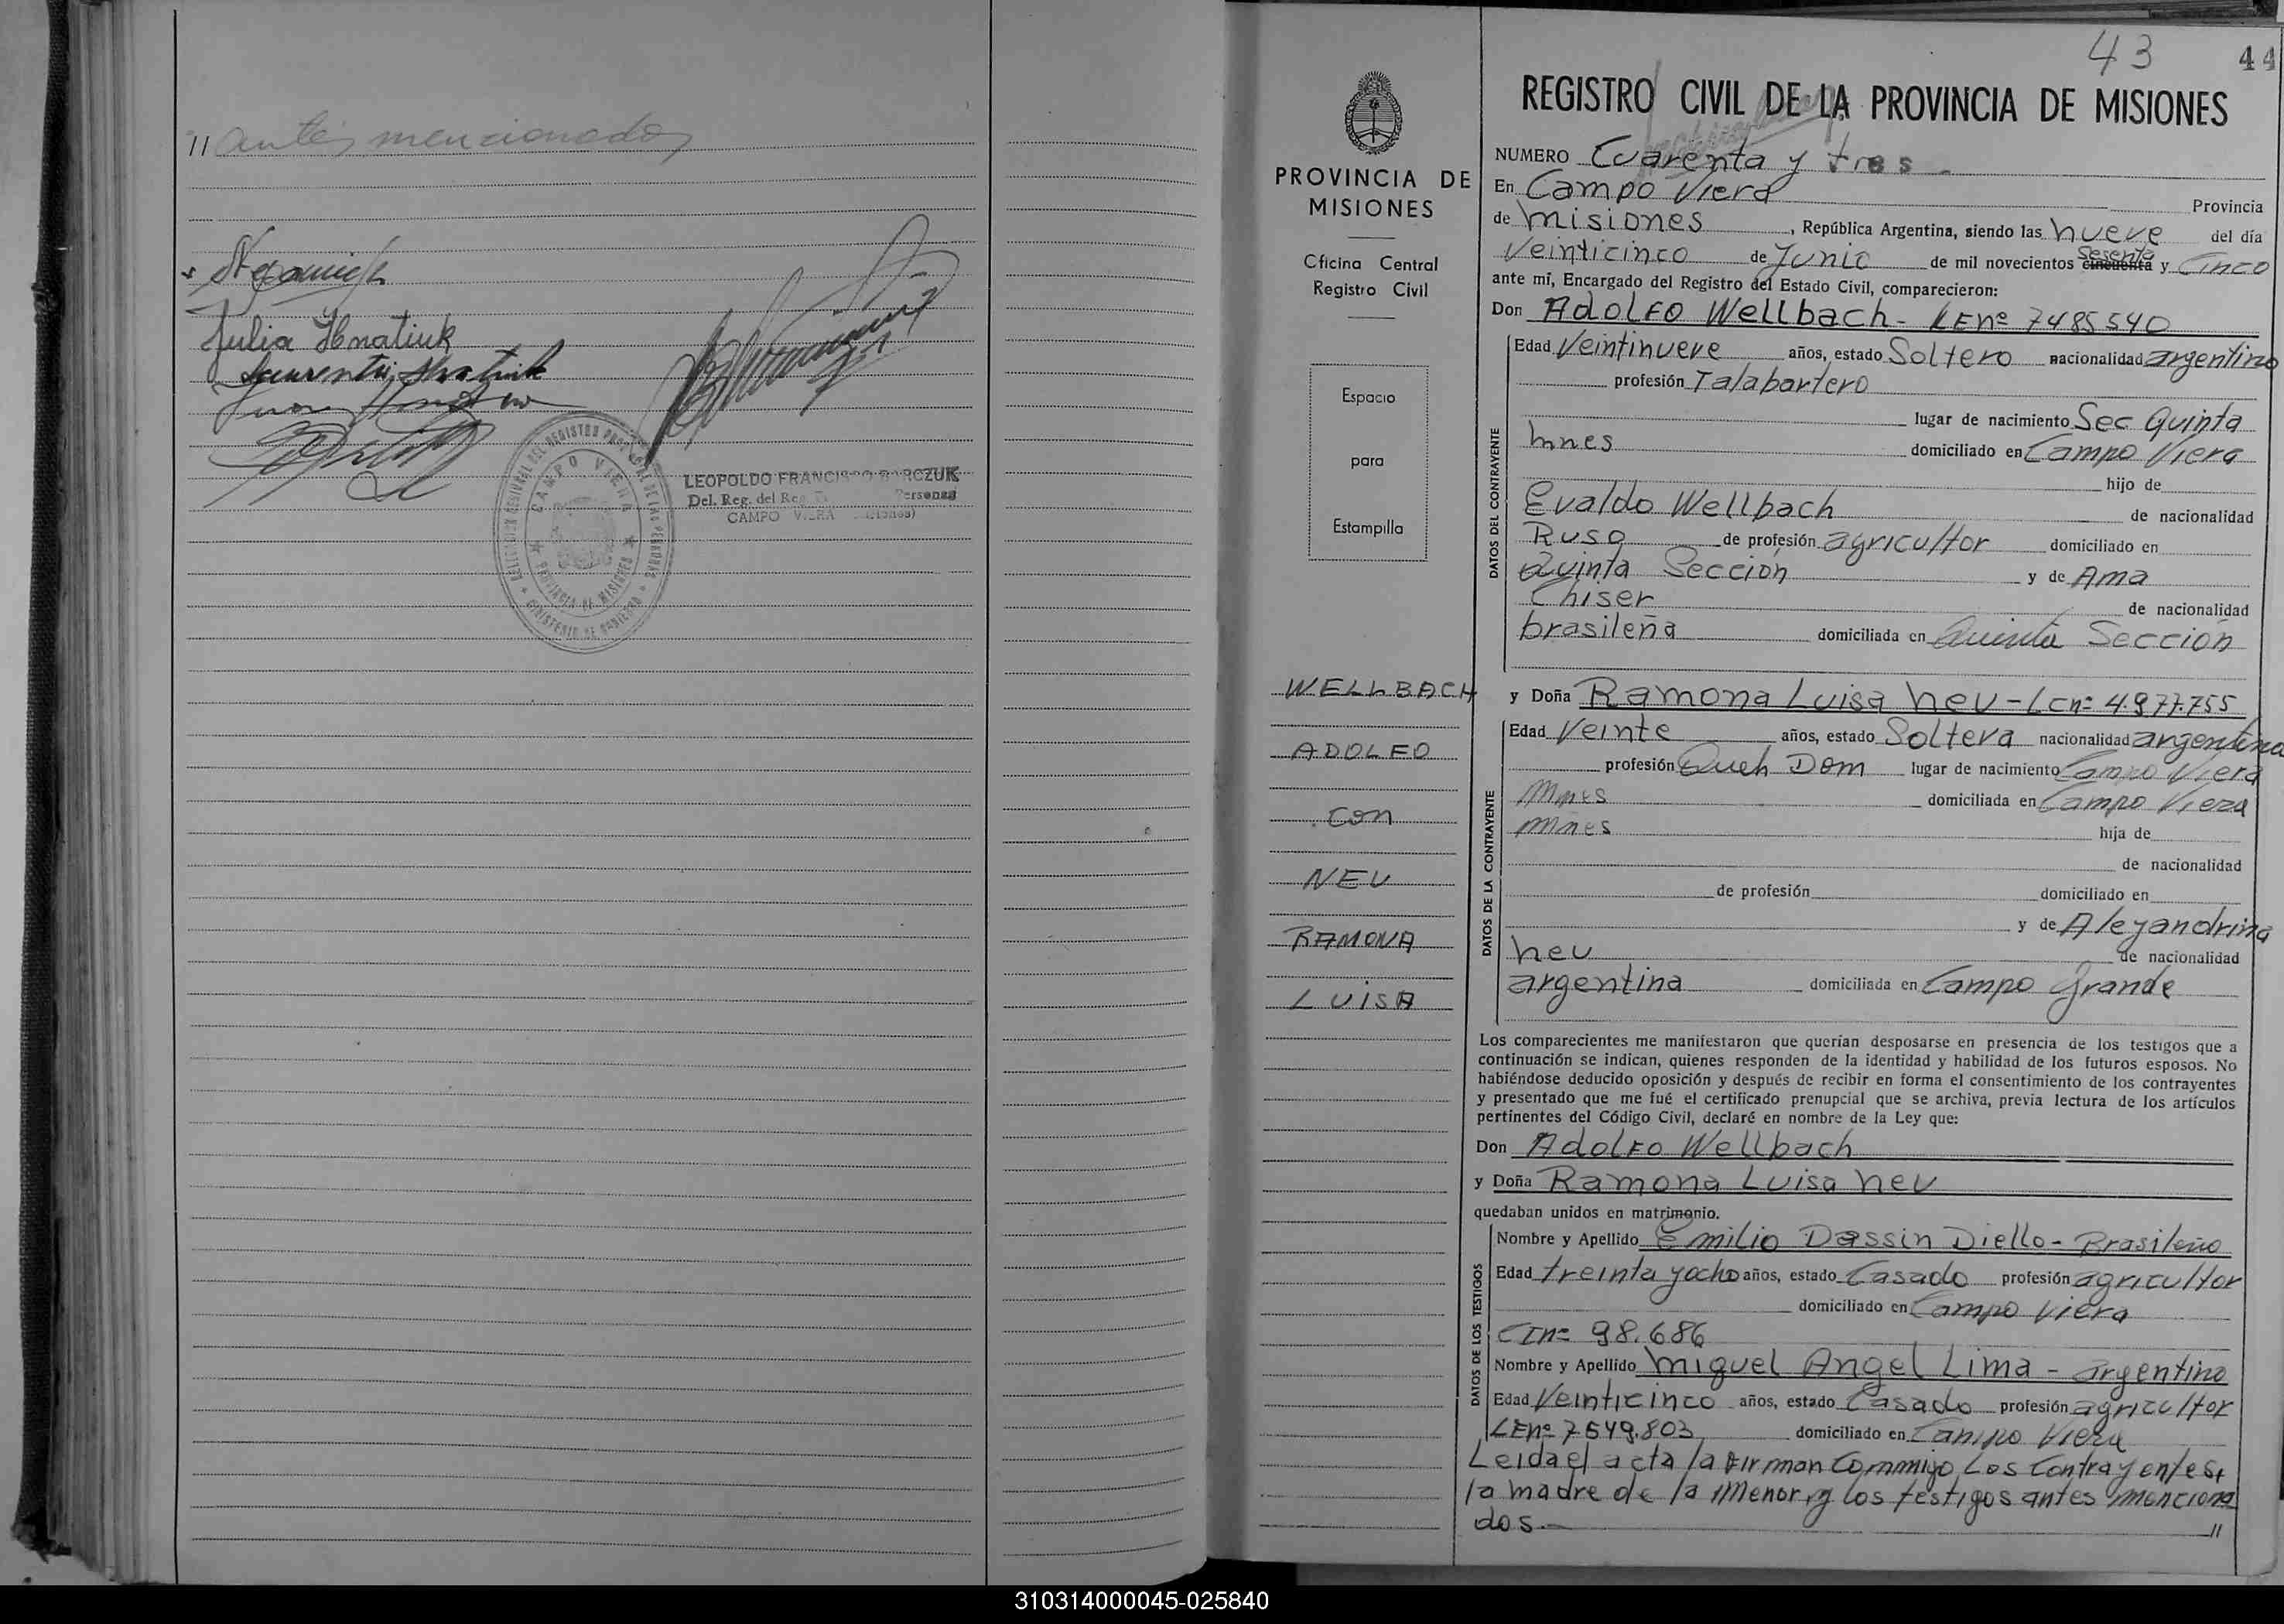 // antes mencionados
Julia Hnatiuk
LEOPOLDO FRANCISCO BARCZUK
Del. Reg. del Reg. Personas
CAMPO VIERA (Misiones)
CAMPO VIERA
PROVINCIA DE MISIONES
MINISTERIO DE GOBIERNO
43 44
PROVINCIA DE
MISIONES
Oficina Central
Registro Civil
Espacio
para
Estampilla
WELLBACH
ADOLFO
con
NEU
RAMONA
LUISA
REGISTRO CIVIL DE LA PROVINCIA DE MISIONES
NUMERO Cuarenta y tres -
En Campo Viera Provincia
de Misiones , República Argentina, siendo las nueve del día
Veinticinco de Junio de mil novecientos cincuenta sesenta y Cinco
ante mí, Encargado del Registro del Estado Civil, comparecieron:
Don Adolfo Wellbach - LEnº 7485540
DATOS DEL CONTRAYENTE
Edad Veintinueve años, estado Soltero nacionalidad argentino
profesión Talabartero
lugar de nacimiento Sec Quinta
Mnes domiciliado en Campo Viera
hijo de
Evaldo Wellbach de nacionalidad
Ruso de profesión agricultor domiciliado en
Quinta Sección y de Ama
Chiser de nacionalidad
brasileña domiciliada en Quinta Sección
y Doña Ramona Luisa Neu - Lcnº 4.977.755
DATOS DE LA CONTRAYENTE
Edad Veinte años, estado Soltera nacionalidad argentina
profesión Queh Dom lugar de nacimiento Campo Viera
Mnes domiciliada en Campo Viera
Mnes hija de
de nacionalidad
de profesión domiciliado en
y de Aleyandrina
Neu de nacionalidad
argentina domiciliada en Campo Grande
Los comparecientes me manifestaron que querían desposarse en presencia de los testigos que a
continuación se indican, quienes responden de la identidad y habilidad de los futuros esposos. No
habiéndose deducido oposición y después de recibir en forma el consentimiento de los contrayentes
y presentado que me fué el certificado prenupcial que se archiva, previa lectura de los artículos
pertinentes del Código Civil, declaré en nombre de la Ley que:
Don Adolfo Wellbach
y Doña Ramona Luisa Neu
quedaban unidos en matrimonio.
DATOS DE LOS TESTIGOS
Nombre y Apellido Emilio Dassin Diello - Brasileño
Edad treinta y ocho años, estado Casado profesión agricultor
domiciliado en Campo Viera
CInº 98.686
Nombre y Apellido Miguel Angel Lima - argentino
Edad Veinticinco años, estado Casado profesión agricultor
LEnº 7549.803 domiciliado en Campo Viera
Leida el acta la firman Commigo, Los Contrayentes,
la madre de la menor, y los testigos antes menciona
dos.- //
310314000045-025840